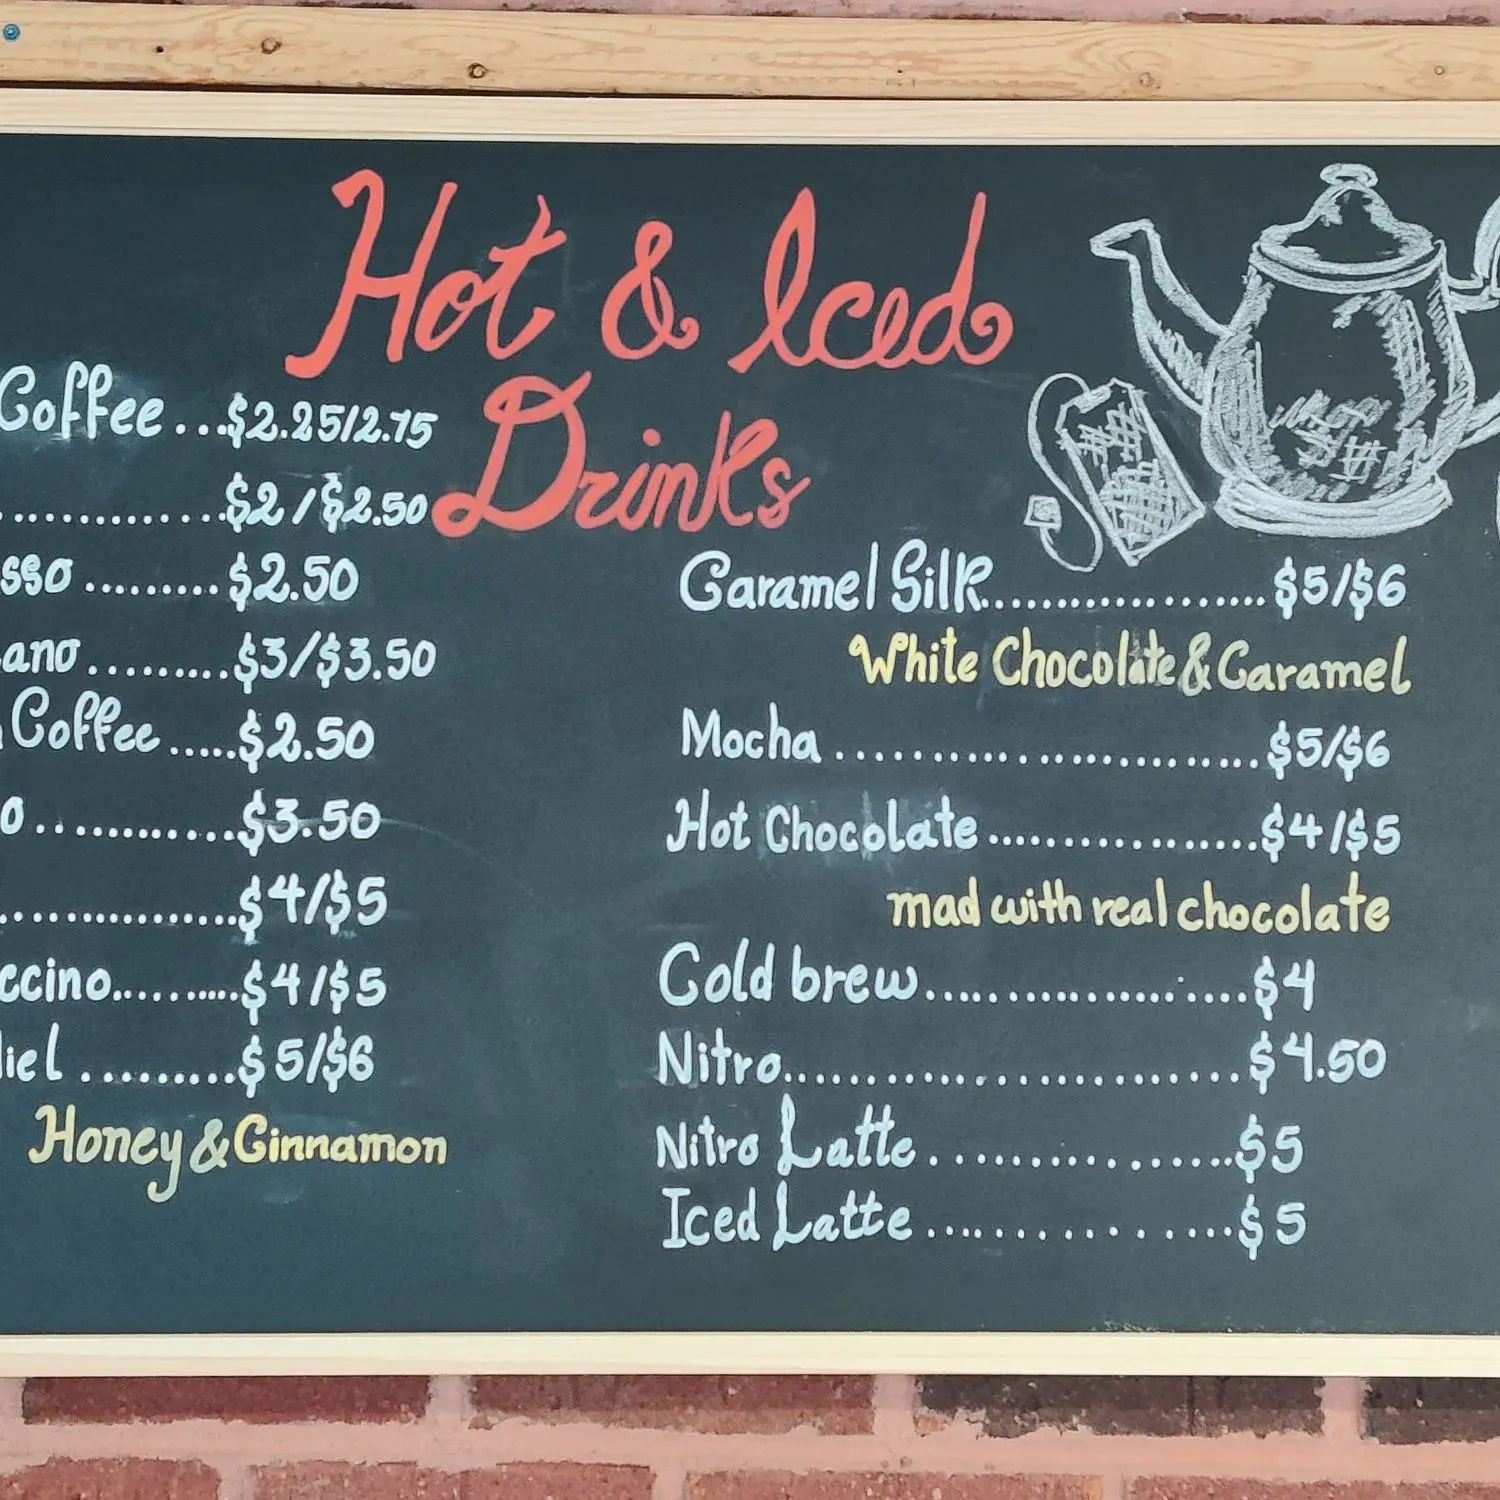 Hot & Iced
Drinks
Coffee ...$2.25/2.75
..............$2/$2.50
sso .........$2.50
ano .........$3/$3.50
Coffee .....$2.50
o ............$3.50
...............$4/$5
ccino.........$4/$5
iel .........$5/$6
Honey & Cinnamon
Caramel Silk....................$5/$6
White Chocolate & Caramel
Mocha .........................$5/$6
Hot Chocolate ..................$4/$5
mad with real chocolate
Cold brew.....................$4
Nitro..............................$4.50
Nitro Latte ...................$5
Iced Latte ..................$5